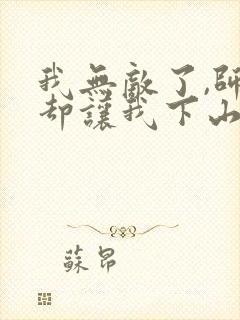 我無敵了,師
却讓我下山
蘇昂